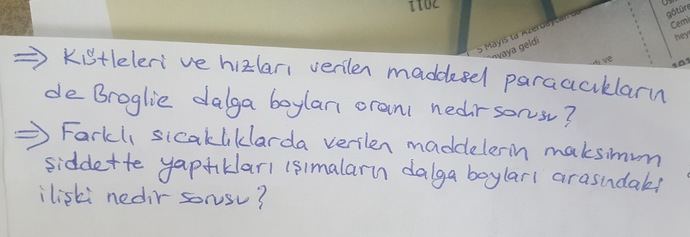 2011
5 Mayıs'ta Azerbaycan
nyaya geldi
götür
Cem
hey
ve
⇒ Kütleleri ve hızları verilen maddesel parçacıkların
de Broglie dalga boyları oranı nedir sorusu?
⇒ Farklı sıcaklıklarda verilen maddelerin maksimum
şiddette yaptıkları ışımaların dalga boyları arasındaki
ilişki nedir sorusu?